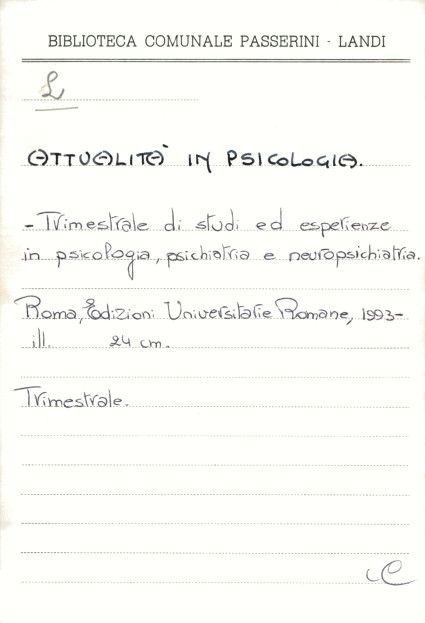 BIBLIOTECA COMUNALE PASSERINI - LANDI
L
ATTUALITÀ IN PSICOLOGIA.
- Trimestrale di studi ed esperienze
in psicologia, psichiatria e neuropsichiatria.
Roma, Edizioni Universitarie Romane, 1993-
ill. 24 cm.
Trimestrale.